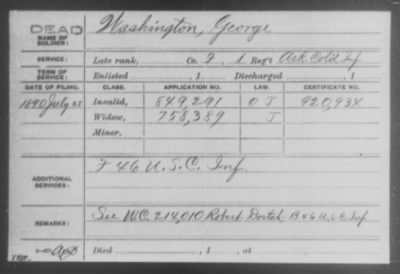 DEAD
NAME OF SOLDIER: Washington, George
SERVICE: Late rank, Co. F, 1 Reg't Ark. Cold Inf.
TERM OF SERVICE: Enlisted , 1 Discharged , 1
DATE OF FILING. CLASS. APPLICATION NO. LAW. CERTIFICATE NO.
1890 July 25 Invalid, 849,291 O J 920,934
Widow, 758,389 J
Minor,
ADDITIONAL SERVICES: F 46 U.S.C. Inf.
REMARKS: See W.C. 214,010 Robert B 46 U.S.C. Inf
Died , 1 , at